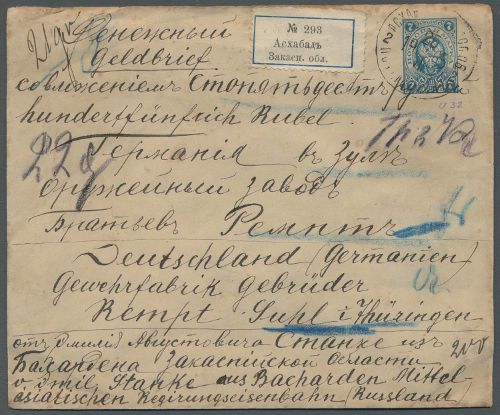 Денежный
Geldbrief
№ 293
Асхабадъ
Закасп. обл.
Стопятьдесятъ
hundertfünfzich Rubel
Германія въ Зулъ
Оружейный заводъ
Братьевъ Ремптъ
Deutschland (Germanien)
Gewehrfabrik Gebrüder
Rempt Suhl i/Thüringen
отъ Эмилія Августовича Станке изъ
Бахардена Закаспійской Области
v. Emil Stanke aus Bacharden Mittel-
asiarischen Regirungseisenbahn (Russland)